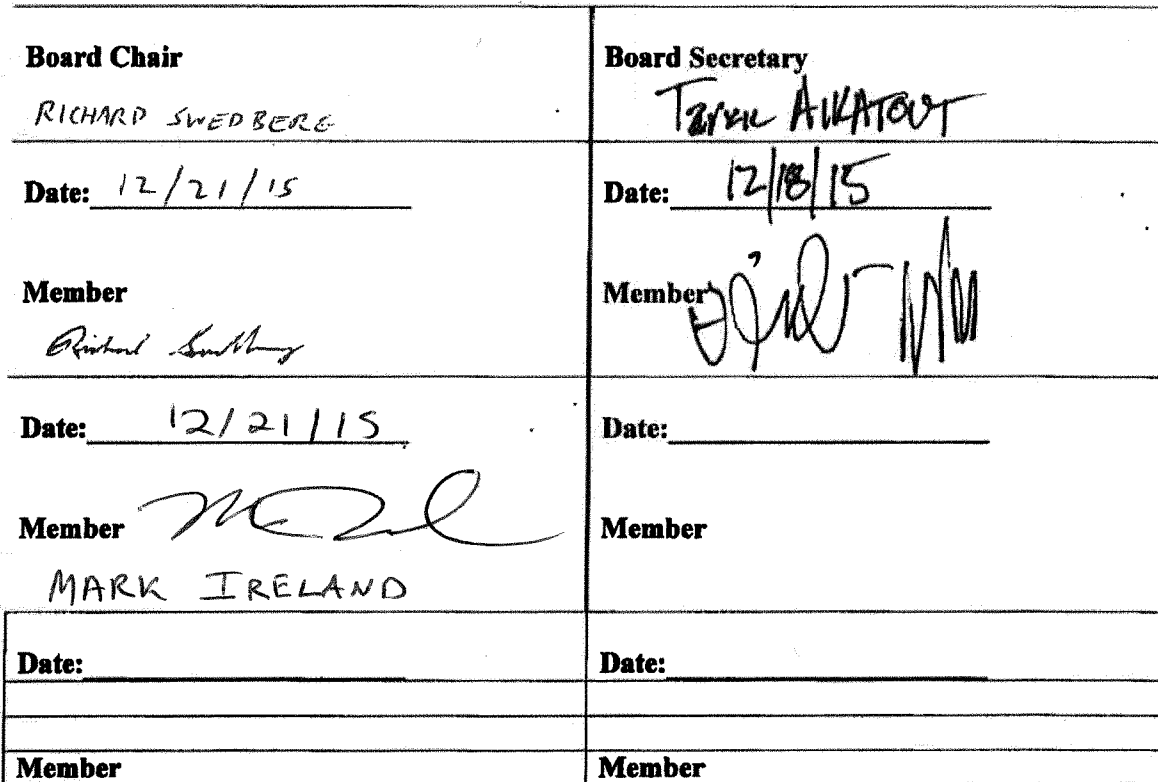 Board Chair
RICHARD SWEDBERG
Date: 12/21/15
Member
Richard Swedberg
Date: 12/21/15
Member
MARK IRELAND
Date:
Member
Board Secretary
Tarek AlKATOUT
Date: 12/18/15
Member
Date:
Member
Date:
Member